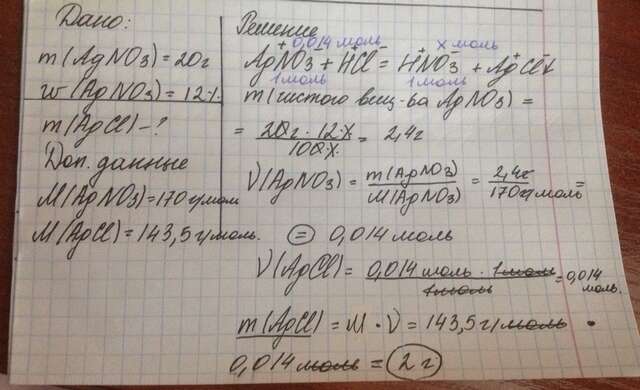 Дано:
m(AgNO3)=20г
w(AgNO3)=12%
m(AgCl)-?
Доп. данные
M(AgNO3)=170г/моль
M(AgCl)=143,5г/моль.
Решение
0,014моль x моль
AgNO3 + HCl = HNO3 + AgCl↓
1моль 1моль
m(чистого вещ-ва AgNO3) =
= 20г · 12% / 100% = 2,4г
ν(AgNO3) = m(AgNO3) / M(AgNO3) = 2,4г / 170г/моль =
= 0,014моль
ν(AgCl) = 0,014моль · 1моль / 1моль = 0,014 моль.
m(AgCl) = M · ν = 143,5г/моль ·
0,014моль = 2г